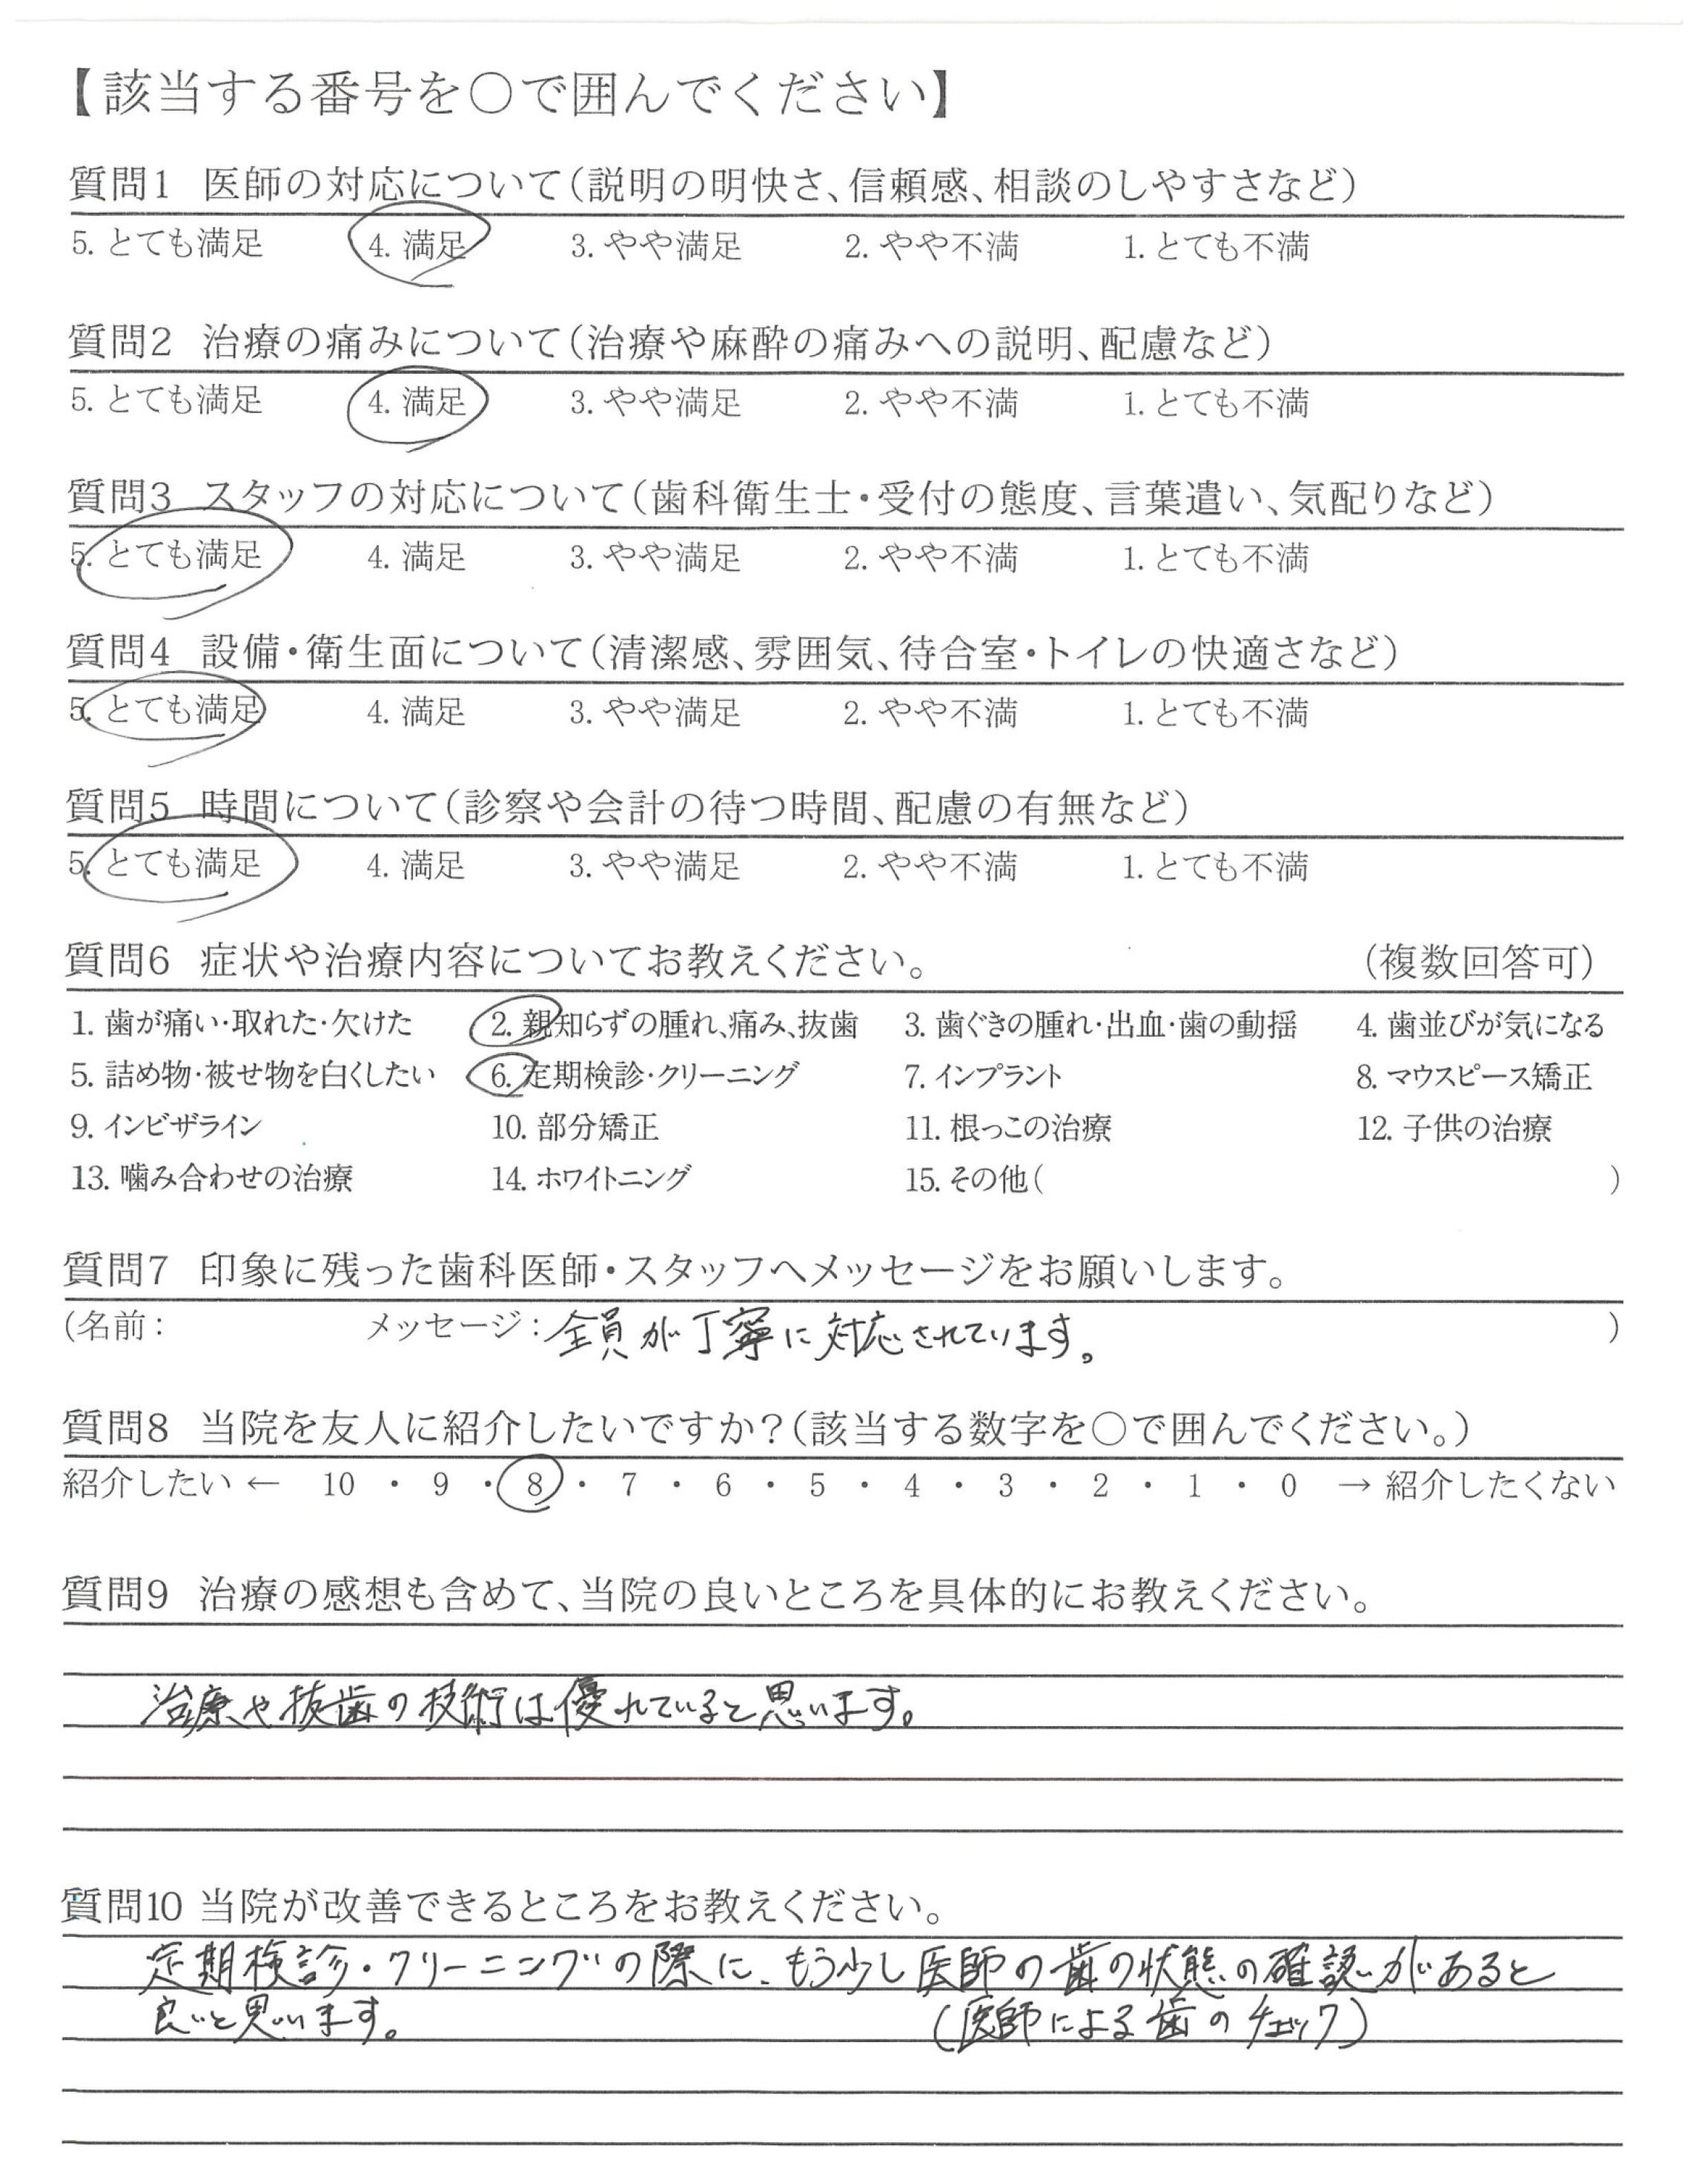 【該当する番号を○で囲んでください】
質問1 医師の対応について(説明の明快さ、信頼感、相談のしやすさなど)
5. とても満足 4. 満足 3. やや満足 2. やや不満 1. とても不満
質問2 治療の痛みについて(治療や麻酔の痛みへの説明、配慮など)
5. とても満足 4. 満足 3. やや満足 2. やや不満 1. とても不満
質問3 スタッフの対応について(歯科衛生士・受付の態度、言葉遣い、気配りなど)
5. とても満足 4. 満足 3. やや満足 2. やや不満 1. とても不満
質問4 設備・衛生面について(清潔感、雰囲気、待合室・トイレの快適さなど)
5. とても満足 4. 満足 3. やや満足 2. やや不満 1. とても不満
質問5 時間について(診察や会計の待つ時間、配慮の有無など)
5. とても満足 4. 満足 3. やや満足 2. やや不満 1. とても不満
質問6 症状や治療内容についてお教えください。 (複数回答可)
1. 歯が痛い・取れた・欠けた 2. 親知らずの腫れ、痛み、抜歯 3. 歯ぐきの腫れ・出血・歯の動揺 4. 歯並びが気になる
5. 詰め物・被せ物を白くしたい 6. 定期検診・クリーニング 7. インプラント 8. マウスピース矯正
9. インビザライン 10. 部分矯正 11. 根っこの治療 12. 子供の治療
13. 噛み合わせの治療 14. ホワイトニング 15. その他( )
質問7 印象に残った歯科医師・スタッフへメッセージをお願いします。
(名前: メッセージ:全員が丁寧に対応されています。 )
質問8 当院を友人に紹介したいですか?(該当する数字を○で囲んでください。)
紹介したい ← 10 ・ 9 ・ 8 ・ 7 ・ 6 ・ 5 ・ 4 ・ 3 ・ 2 ・ 1 ・ 0 → 紹介したくない
質問9 治療の感想も含めて、当院の良いところを具体的にお教えください。
治療や抜歯の技術は優れていると思います。
質問10 当院が改善できるところをお教えください。
定期検診・クリーニングの際に、もう少し医師の歯の状態の確認があると
良いと思います。 (医師による歯のチェック)